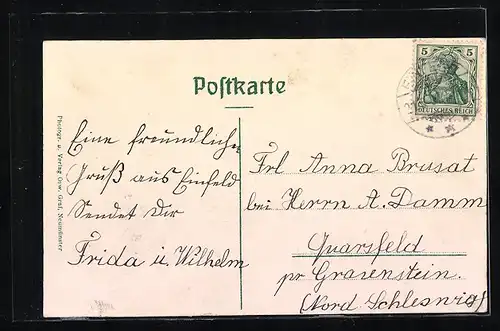 Postkarte
5 5
DEUTSCHES REICH
Eine freundliche
Gruß aus Einfeld
Sendet Dir
Frida u. Wilhelm
Frl Anna Brusat
bei Herrn A. Damm
Quarsfeld
pr Gravenstein.
(Nord Schleswig)
Photogr. u. Verlag Osw. Graf, Neumünster